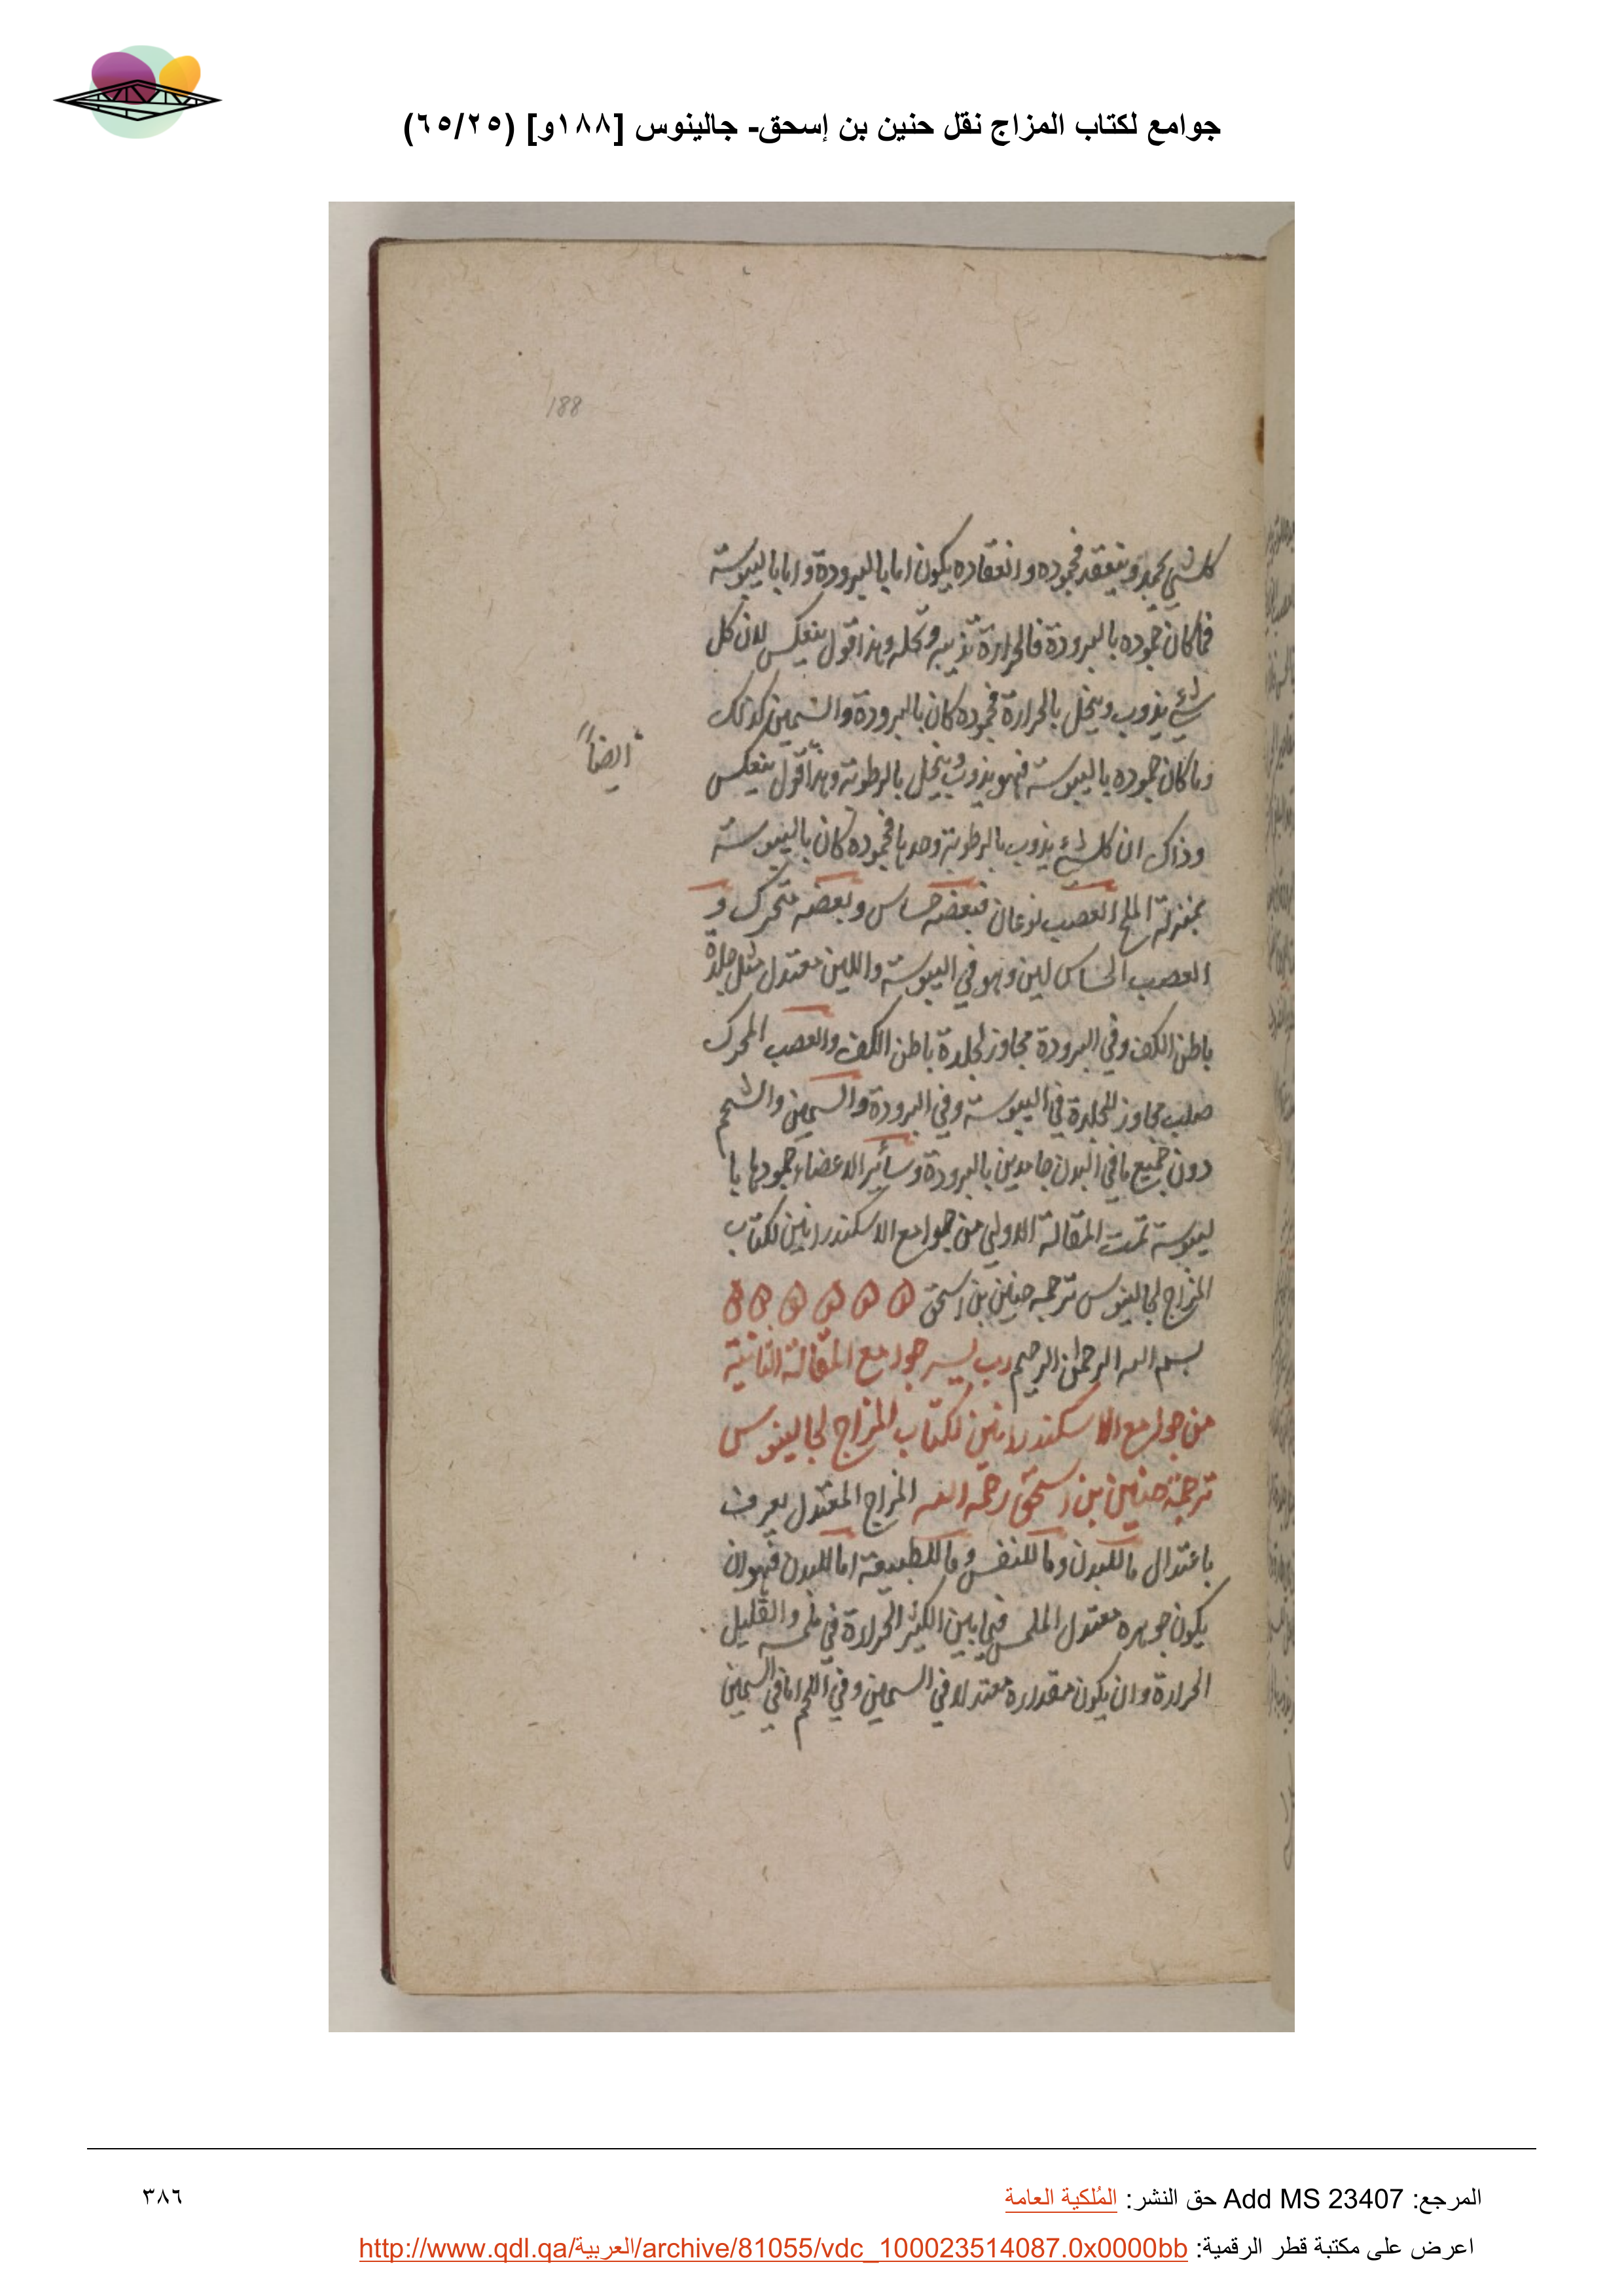 جوامع لكتاب المزاج نقل حنين بن إسحق- جالينوس [١٨٨و] (٦٥/٢٥)
188
كل شي يجمد وينعقد فجموده وانعقاده يكون اما بالبرودة واما باليبوسة
فما كان جموده بالبرودة فالحرارة تذيبه وتحله وهذا قول ينعكس لان كل
شيء يذوب وينحل بالحرارة فجموده كان بالبرودة والسمين كذلك
وما كان جموده باليبوسة فهو يذوب وينحل بالرطوبة وهذا قول ينعكس
ايضاً
وذاك ان كل شيء يذوب بالرطوبة وحدها فجموده كان باليبوسة
بمنزلة الملح العصب نوعان فبعضه حساس وبعضه متحرك و
العصب الحساس لين وهو في اليبوسة واللين معتدل مثل جلدة
باطن الكف وفي البرودة مجاوز لجلدة باطن الكف والعصب المحرك
صلب مجاوز للجلدة في اليبوسة وفي البرودة والسمين والشحم
دون جميع ما في البدن جامدين بالبرودة وسائر الاعضاء جمودها با
ليبوسة تمت المقالة الاولي من جوامع الاسكندرانين لكتاب
المزاج لجالينوس ترجمه حنين بن اسحق ه ه ه ه ه ه
بسم الله الرحمن الرحيم رب يسر جوامع المقالة الثانية
من جوامع الاسكندرانين لكتاب المزاج لجالينوس
ترجمة حنين بن اسحق رحمه الله المزاج المعتدل يعرف
باعتدال ما للبدن وما للنفس وما للطبيعة اما للبدن فهو ان
يكون جوهره معتدل الملمس فيما بين الكثير الحرارة في ملمسه والقليل
الحرارة وان يكون مقداره معتدلا في السمين وفي اللحم اما في السمين
المرجع: Add MS 23407 حق النشر: المُلكية العامة
٣٨٦
اعرض على مكتبة قطر الرقمية: http://www.qdl.qa/العربية/archive/81055/vdc_100023514087.0x0000bb